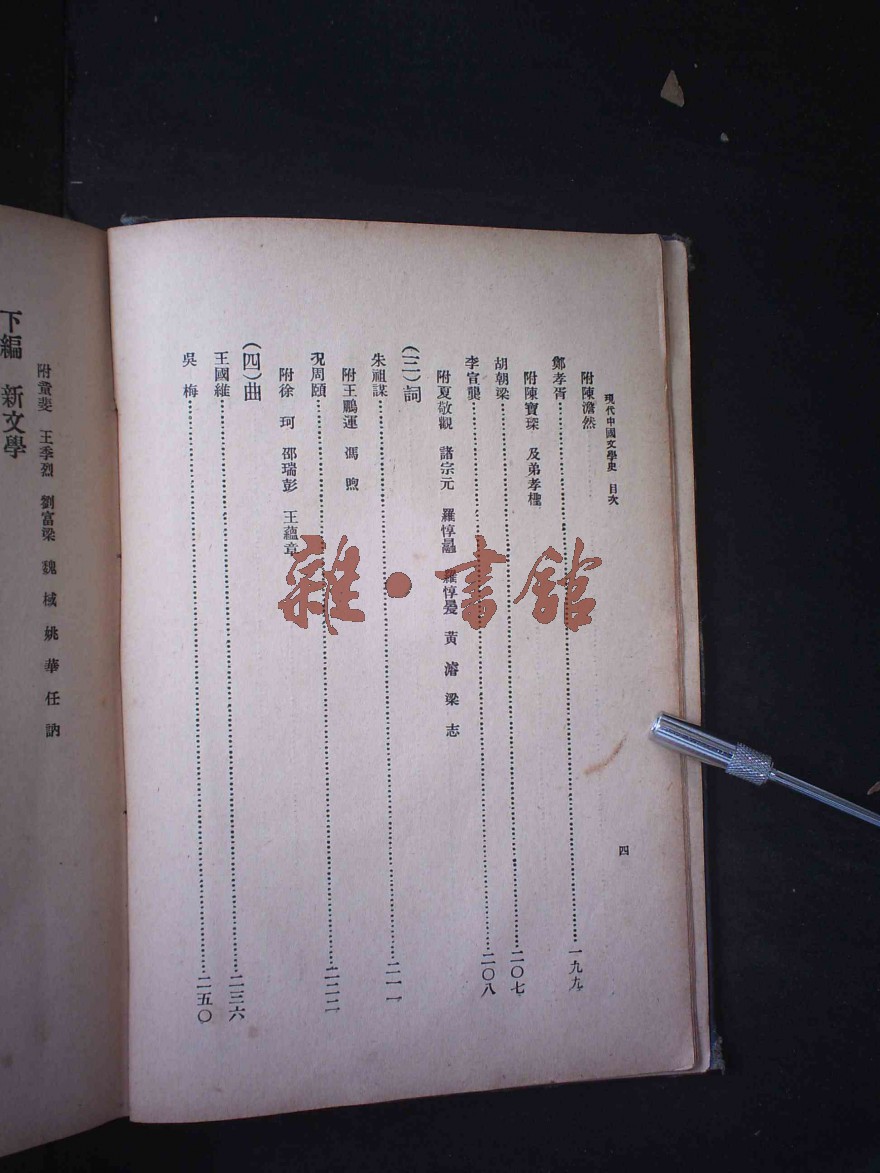 現代中國文學史　目次
四
附陳澹然
鄭孝胥……一九九
附陳寶琛　及弟孝檉
胡朝梁……二〇七
李宣龔……二〇八
附夏敬觀　諸宗元　羅惇曧　羅惇㬊　黃　濬　梁　志
(三)詞
朱祖謀……二一一
附王鵬運　馮　煦
況周頤……二二二
附徐　珂　邵瑞彭　王蘊章
(四)曲
王國維……二三六
吳　梅……二五〇
附童斐　王季烈　劉富梁　魏　戫　姚　華　任　訥
下編　新文學
雜·書館